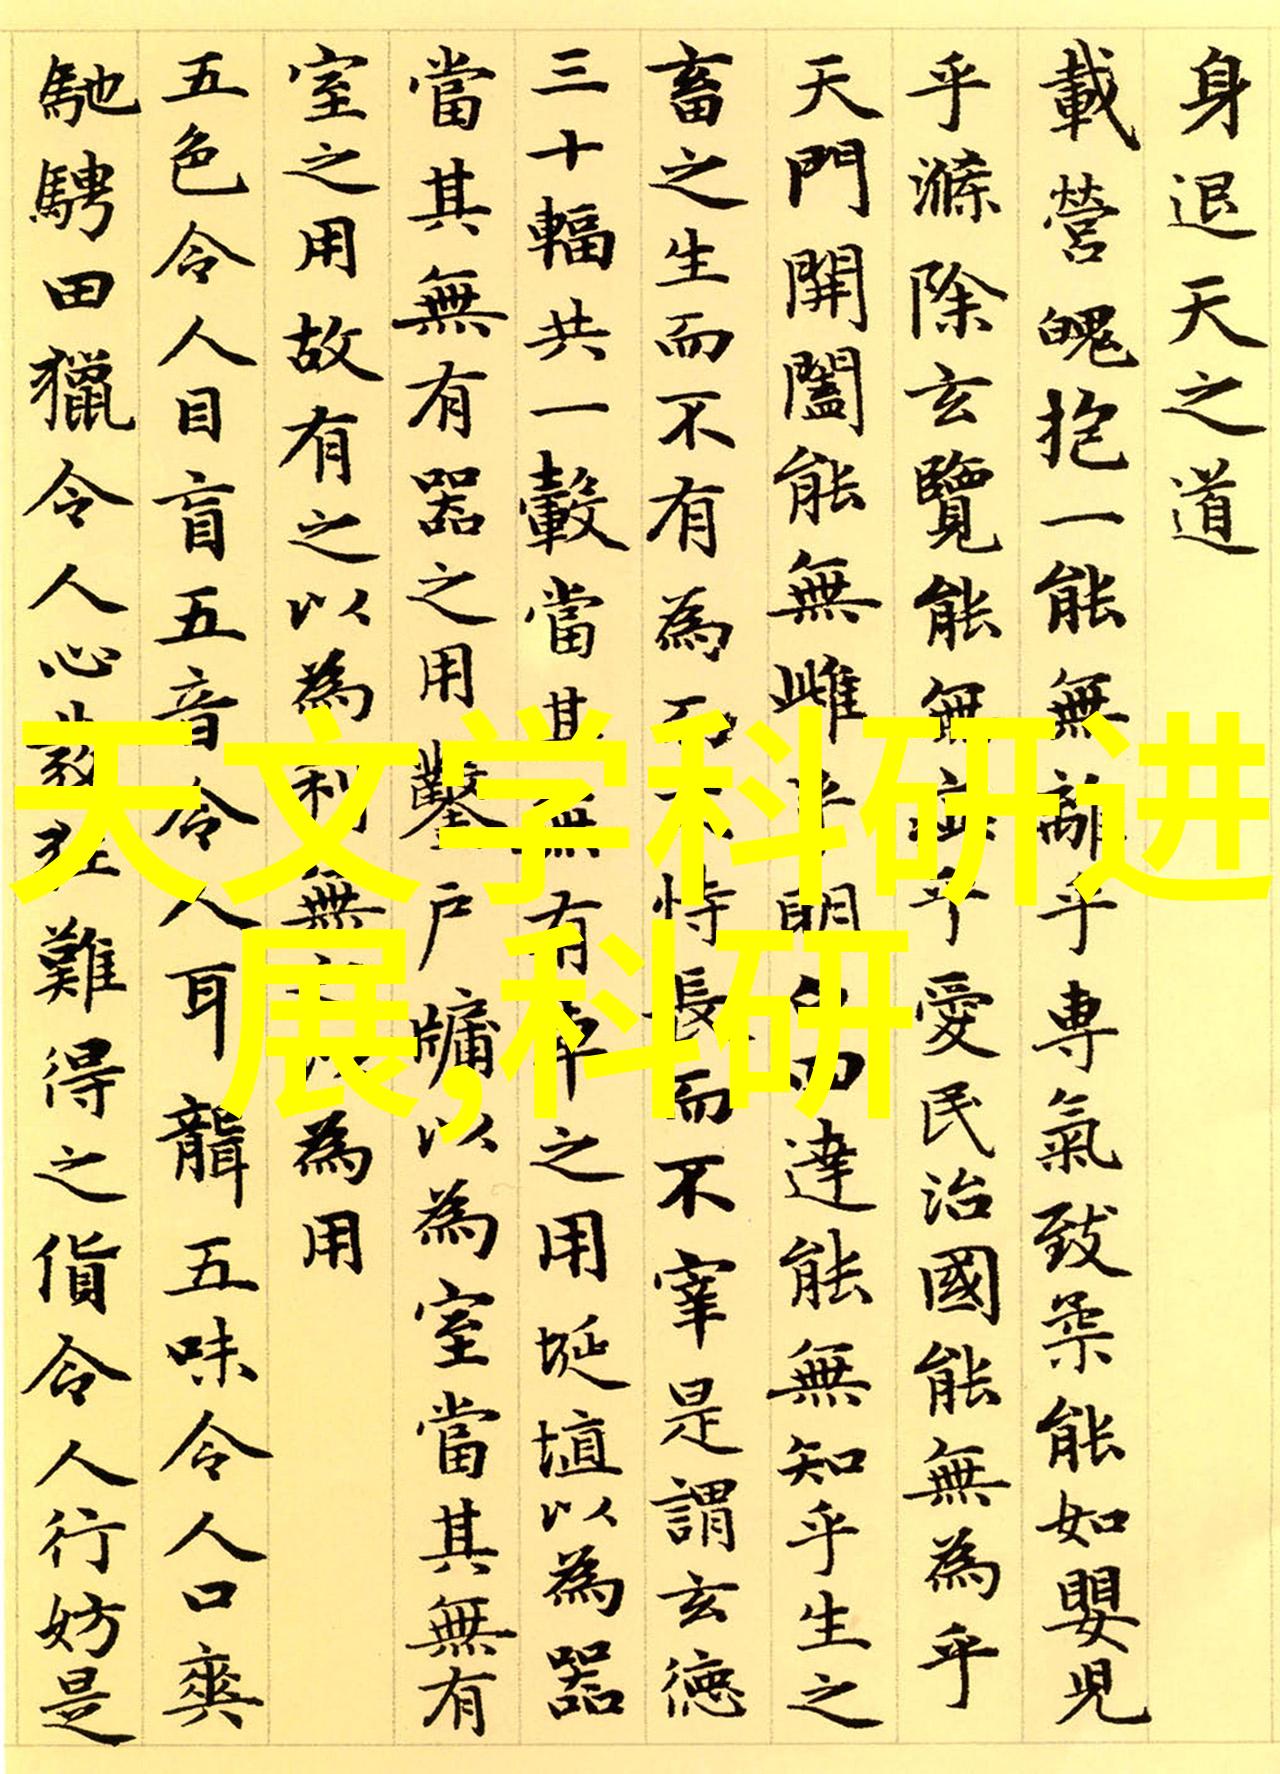 身退天之道
載營魄抱一能無離乎專氣致柔能如嬰兒
乎滌除玄覽能無疵乎愛民治國能無為乎
天門開闔能無雌乎明白四達能無知乎生之
畜之生而不有為而不恃長而不宰是謂玄德
三十輻共一轂當其無有車之用埏埴以為器
當其無有器之用鑿戶牖以為室當其無有
室之用故有之以為利無之以為用
五色令人目盲五音令人耳聾五味令人口爽
馳騁田獵令人心發狂難得之貨令人行妨是
天文学科研进
展,科研